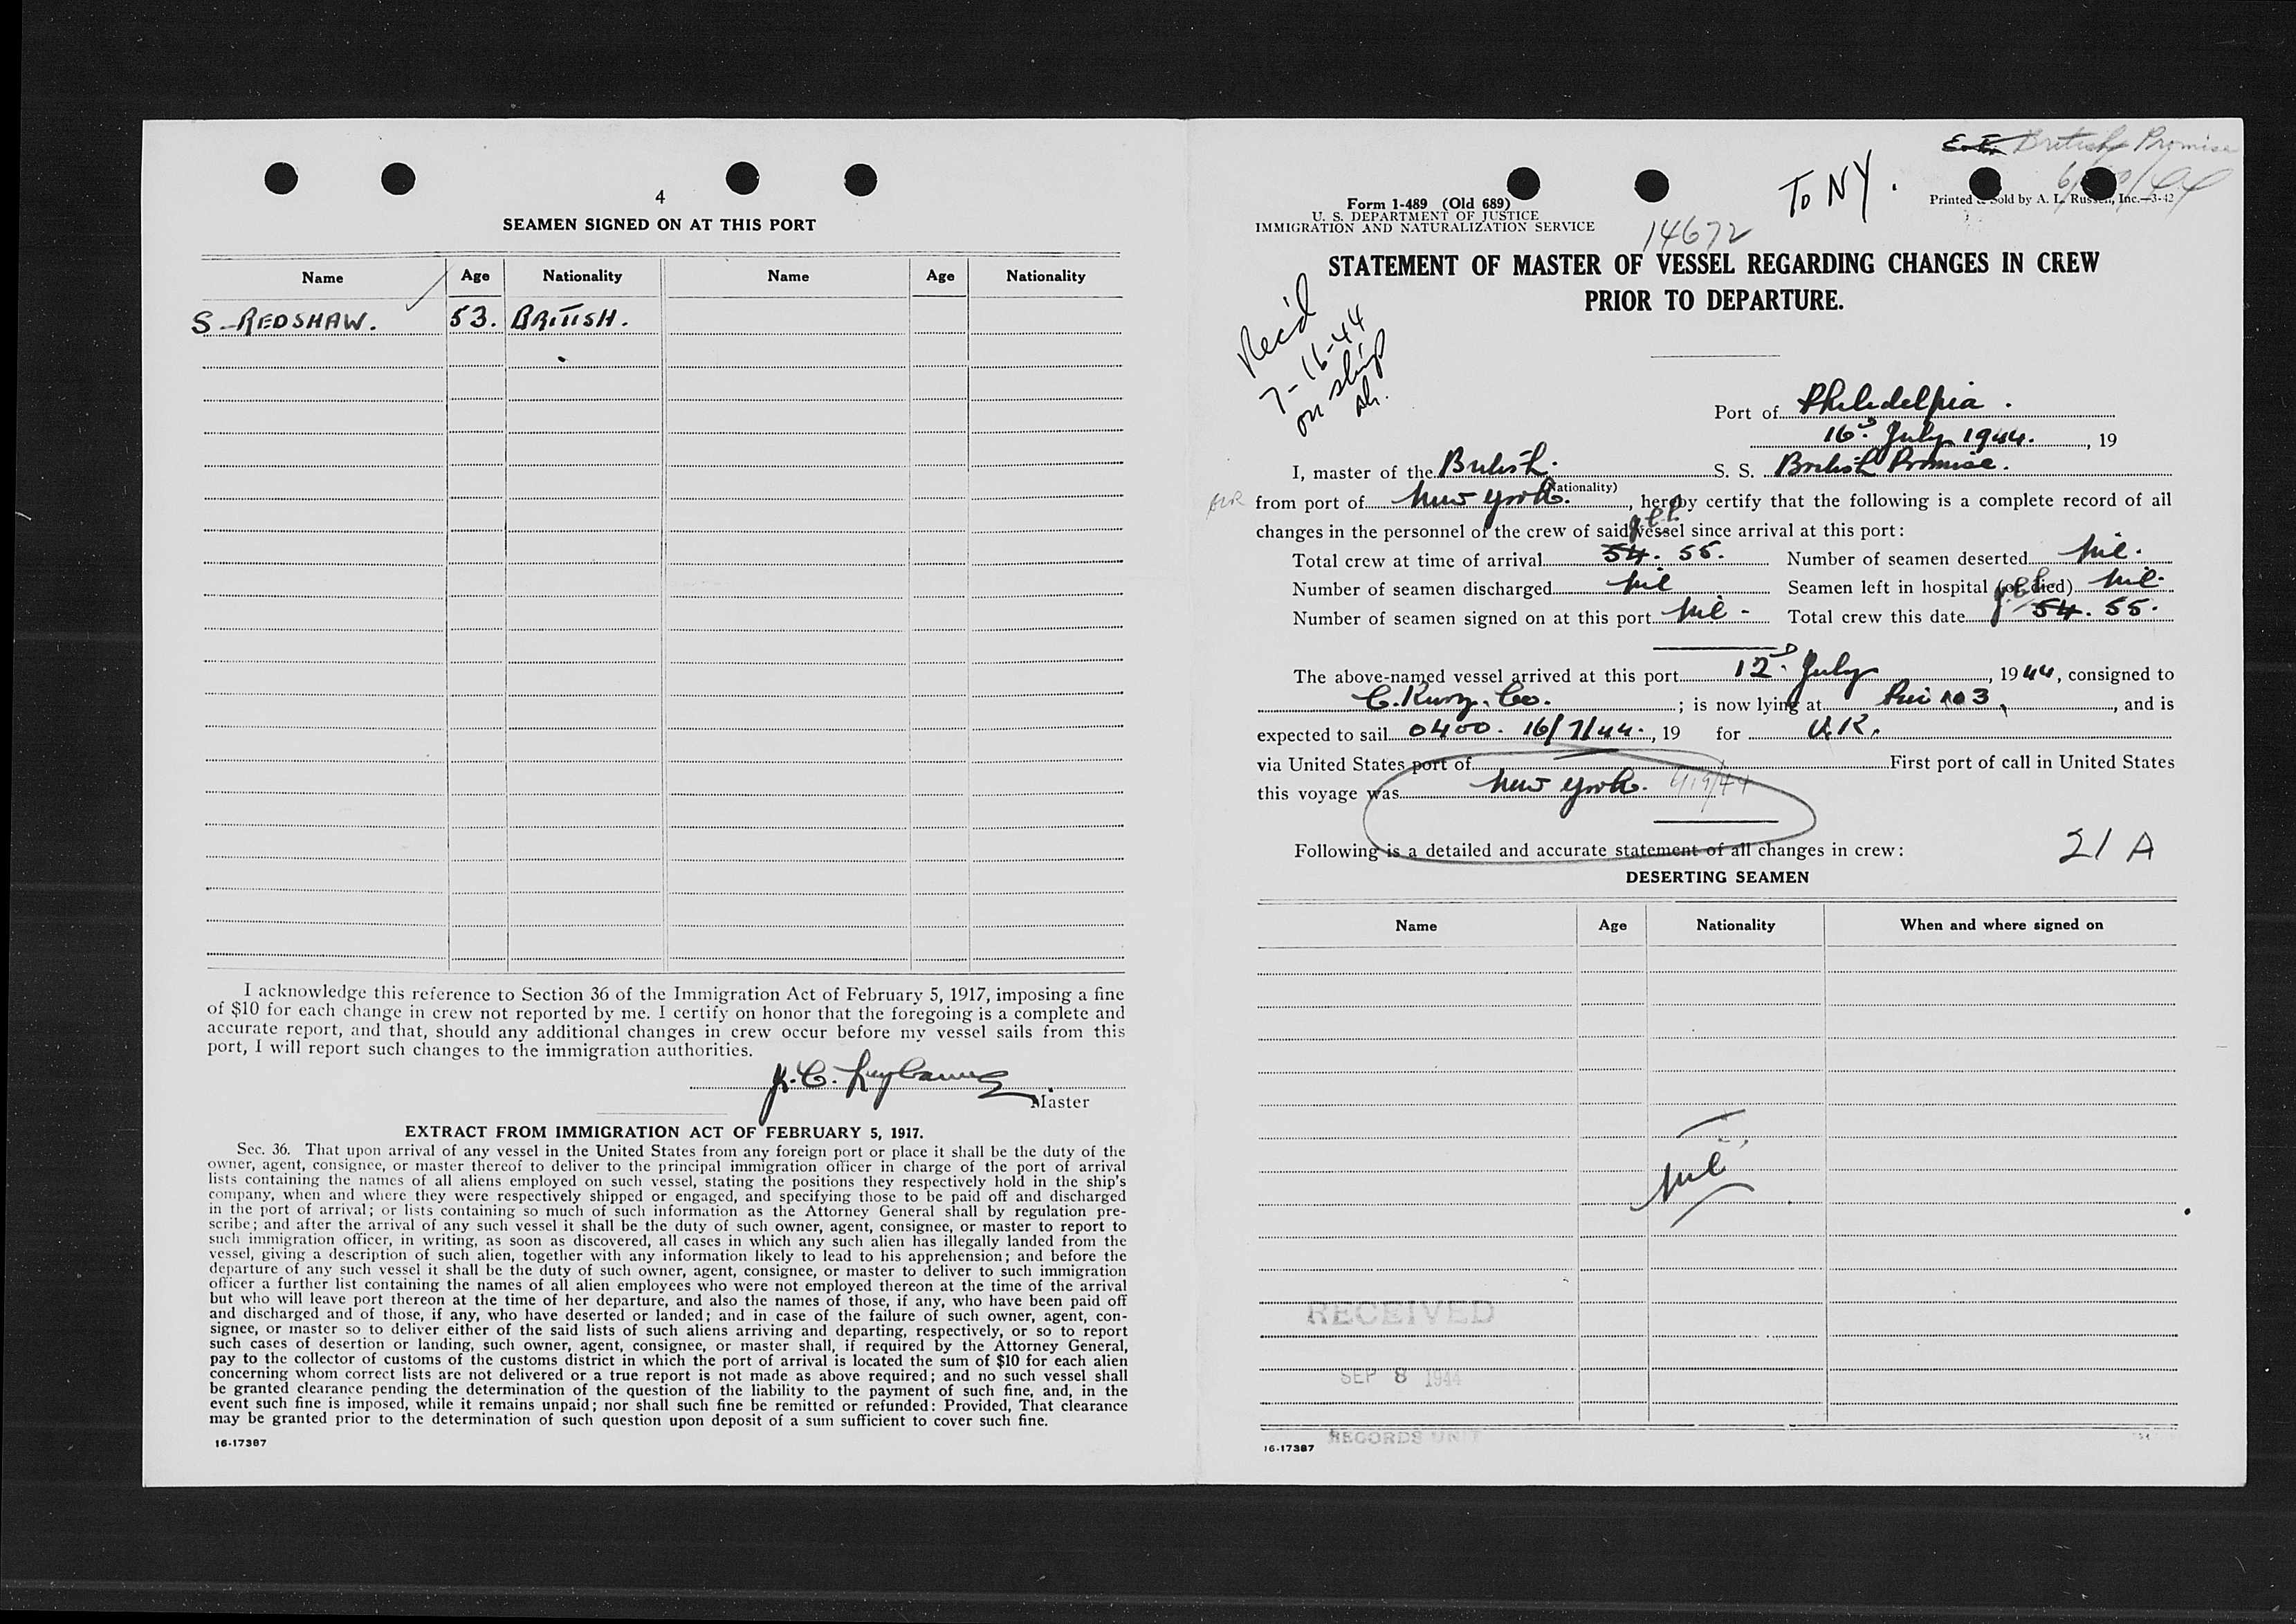 4
SEAMEN SIGNED ON AT THIS PORT
Name Age Nationality Name Age Nationality
S. REDSHAW. 53. BRITISH.
I acknowledge this reference to Section 36 of the Immigration Act of February 5, 1917, imposing a fine
of $10 for each change in crew not reported by me. I certify on honor that the foregoing is a complete and
accurate report, and that, should any additional changes in crew occur before my vessel sails from this
port, I will report such changes to the immigration authorities.
Master
EXTRACT FROM IMMIGRATION ACT OF FEBRUARY 5, 1917.
Sec. 36. That upon arrival of any vessel in the United States from any foreign port or place it shall be the duty of the
owner, agent, consignee, or master thereof to deliver to the principal immigration officer in charge of the port of arrival
lists containing the names of all aliens employed on such vessel, stating the positions they respectively hold in the ship's
company, when and where they were respectively shipped or engaged, and specifying those to be paid off and discharged
in the port of arrival; or lists containing so much of such information as the Attorney General shall by regulation pre-
scribe; and after the arrival of any such vessel it shall be the duty of such owner, agent, consignee, or master to report to
such immigration officer, in writing, as soon as discovered, all cases in which any such alien has illegally landed from the
vessel, giving a description of such alien, together with any information likely to lead to his apprehension; and before the
departure of any such vessel it shall be the duty of such owner, agent, consignee, or master to deliver to such immigration
officer a further list containing the names of all alien employees who were not employed thereon at the time of the arrival
but who will leave port thereon at the time of her departure, and also the names of those, if any, who have been paid off
and discharged and of those, if any, who have deserted or landed; and in case of the failure of such owner, agent, con-
signee, or master so to deliver either of the said lists of such aliens arriving and departing, respectively, or so to report
such cases of desertion or landing, such owner, agent, consignee, or master shall, if required by the Attorney General,
pay to the collector of customs of the customs district in which the port of arrival is located the sum of $10 for each alien
concerning whom correct lists are not delivered or a true report is not made as above required; and no such vessel shall
be granted clearance pending the determination of the question of the liability to the payment of such fine, and, in the
event such fine is imposed, while it remains unpaid; nor shall such fine be remitted or refunded: Provided, That clearance
may be granted prior to the determination of such question upon deposit of a sum sufficient to cover such fine.
16-17387
British Promise
To NY.
Form 1-489 (Old 689)
Printed & Sold by A. L. Russell, Inc.—3-42
U. S. DEPARTMENT OF JUSTICE
IMMIGRATION AND NATURALIZATION SERVICE
14672
STATEMENT OF MASTER OF VESSEL REGARDING CHANGES IN CREW
PRIOR TO DEPARTURE.
Rec'd
7-16-44
on ship
Port of Philedelpia.
16th July 1944. , 19
I, master of the British. S. S. British Promise.
(Nationality)
from port of New York. , hereby certify that the following is a complete record of all
changes in the personnel of the crew of said vessel since arrival at this port:
Total crew at time of arrival 54. 55. Number of seamen deserted Nil.
Number of seamen discharged Nil Seamen left in hospital (or died) Nil.
Number of seamen signed on at this port Nil - Total crew this date 54. 55.
The above-named vessel arrived at this port 12th July , 1944, consigned to
C. Kurz. Co. ; is now lying at 103 , and is
expected to sail 0400. 16/7/44. , 19 for U.K.
via United States port of First port of call in United States
this voyage was New York.
Following is a detailed and accurate statement of all changes in crew:
21 A
DESERTING SEAMEN
Name Age Nationality When and where signed on
Nil
RECEIVED
SEP 8 1944
RECORDS UNIT
16-17387